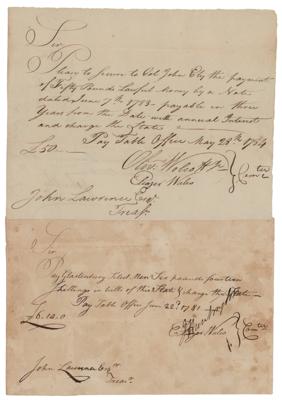 Sir
Please to secure to Col John Ely the payment
of Fifty Pounds Lawful Money by a Note
dated June 7th 1783 payable in three
Years from the Date with annual Interest
and charge the State
Pay Table Office May 28th 1784
£50
Olivr Wolcott Jr
Comtee
John Lawrence Esqr
Treasr
Sir
Pay Glastenbury Select Men Six pounds fourteen
shillings in bills of this State & charge the State
Pay Table Office June 22d 1781
£6.14.0
Comtee
John Lawrence Esqr
Treasr